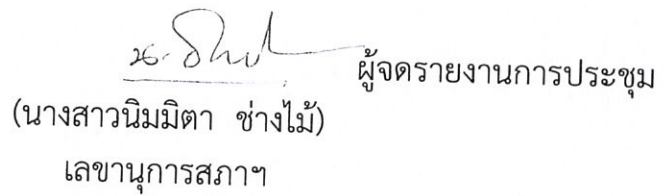 ผู้จดรายงานการประชุม
(นางสาวนิมมิตา ช่างไม้)
เลขานุการสภาฯ